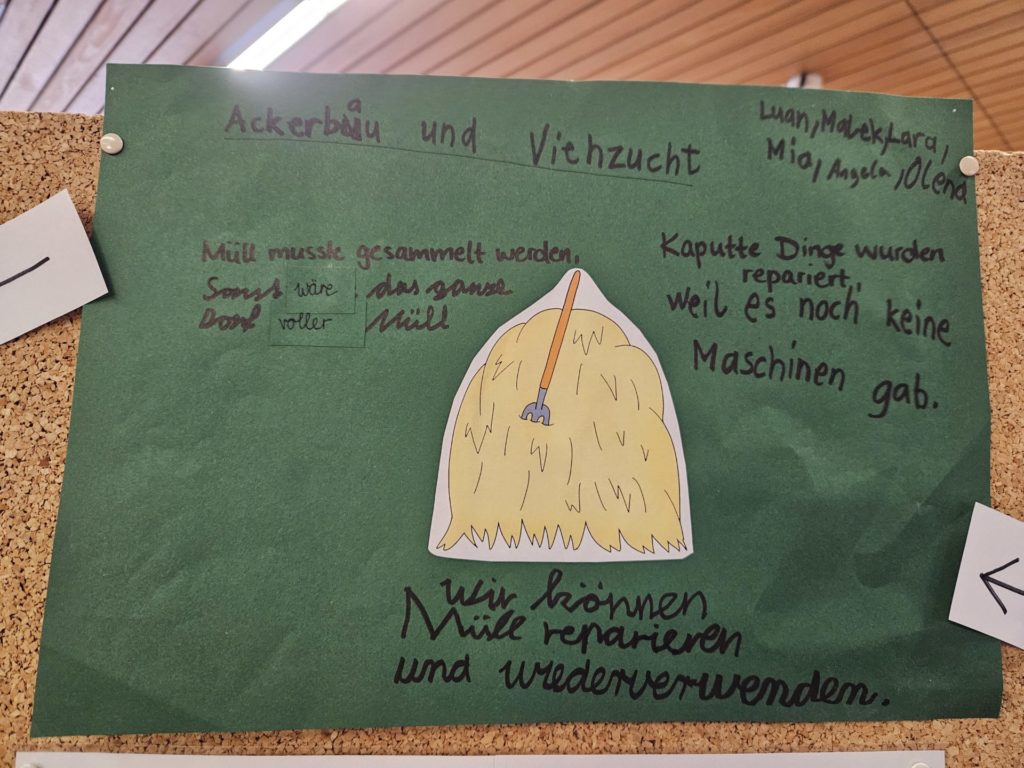 Ackerbau und Viehzucht
Luan, Malek, Lara,
Mia, Angela, Olena
Müll musste gesammelt werden,
Sonst wäre das ganze
Dorf voller Müll
Kaputte Dinge wurden
repariert,
weil es noch keine
Maschinen gab.
Wir können
Müll reparieren
und wiederverwenden.